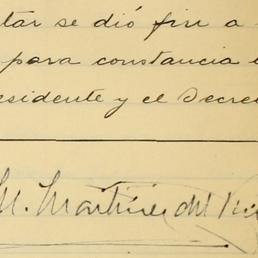 tar se dió fin a
para constancia
esidente y el Secre
M. Martínez del Río